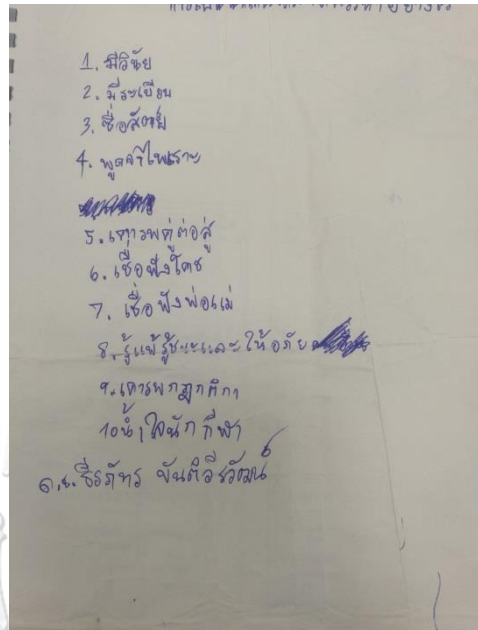 1. มีวินัย
2. มีระเบียบ
3. ซื่อสัตย์
4. พูดจาไพเราะ
5. เคารพคู่ต่อสู้
6. เชื่อฟังโคช
7. เชื่อฟังพ่อแม่
8. รู้แพ้รู้ชนะและให้อภัย
9. เคารพกฎกติกา
10 น้ำใจนักกีฬา
ด.ช. ธีรภัทร